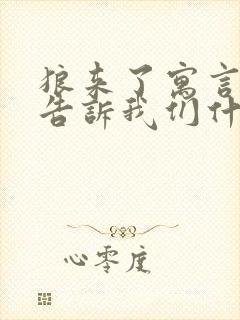 狼来了寓言
告訴我们什
心零度